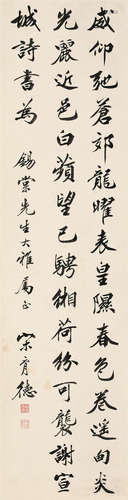 威仰弛蒼郊龍曜表皇隰春色卷遙甸炎
光麗近邑白蘋望已騁緗荷紛可襲謝宣
城詩書為
錫棠先生大雅屬正
宋育德